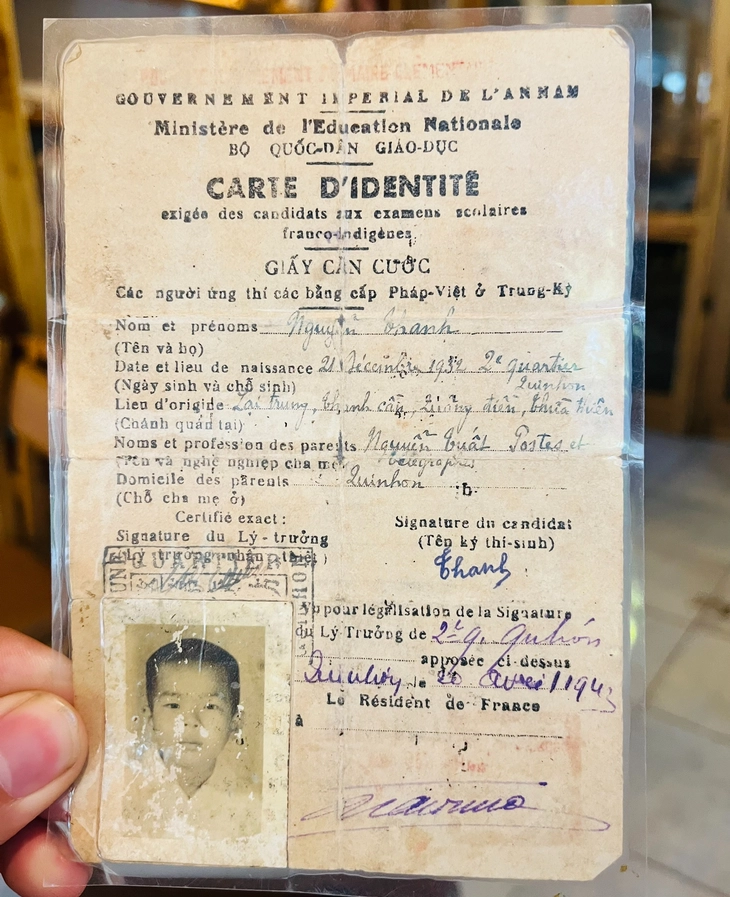 GOUVERNEMENT IMPERIAL DE L'ANNAM
Ministère de l'Education Nationale
BỘ QUỐC-DÂN GIÁO-DỤC
CARTE D'IDENTITÉ
exigée des candidats aux examens scolaires
franco-indigènes
GIẤY CĂN CƯỚC
Các người ứng thí các bằng cấp Pháp-Việt ở Trung-Kỳ
Nom et prénoms Nguyễn Thanh
(Tên và họ)
Date et lieu de naissance 21 Décembre 1932 2e quartier
(Ngày sinh và chỗ sinh) Quinhon
Lieu d'origine Lai trung, Thanh cần, Quảng điền, Thừa thiên
(Chánh quán tại)
Noms et profession des parents Nguyễn Tuất Postes et
(Tên và nghề nghiệp cha mẹ) télégraphes
Domicile des parents Quinhon
(Chỗ cha mẹ ở)
Certifié exact :
Signature du Lý-trưởng
(Lý trưởng nhận thiệt)
Signature du candidat
(Tên ký thí-sinh)
Thanh
QUARTIER
Vu pour légalisation de la Signature
du Lý Trưởng de 2e q. Quinhon
apposée ci-dessus
Quinhon le 20 Avril 1943
Le Résident de France
à